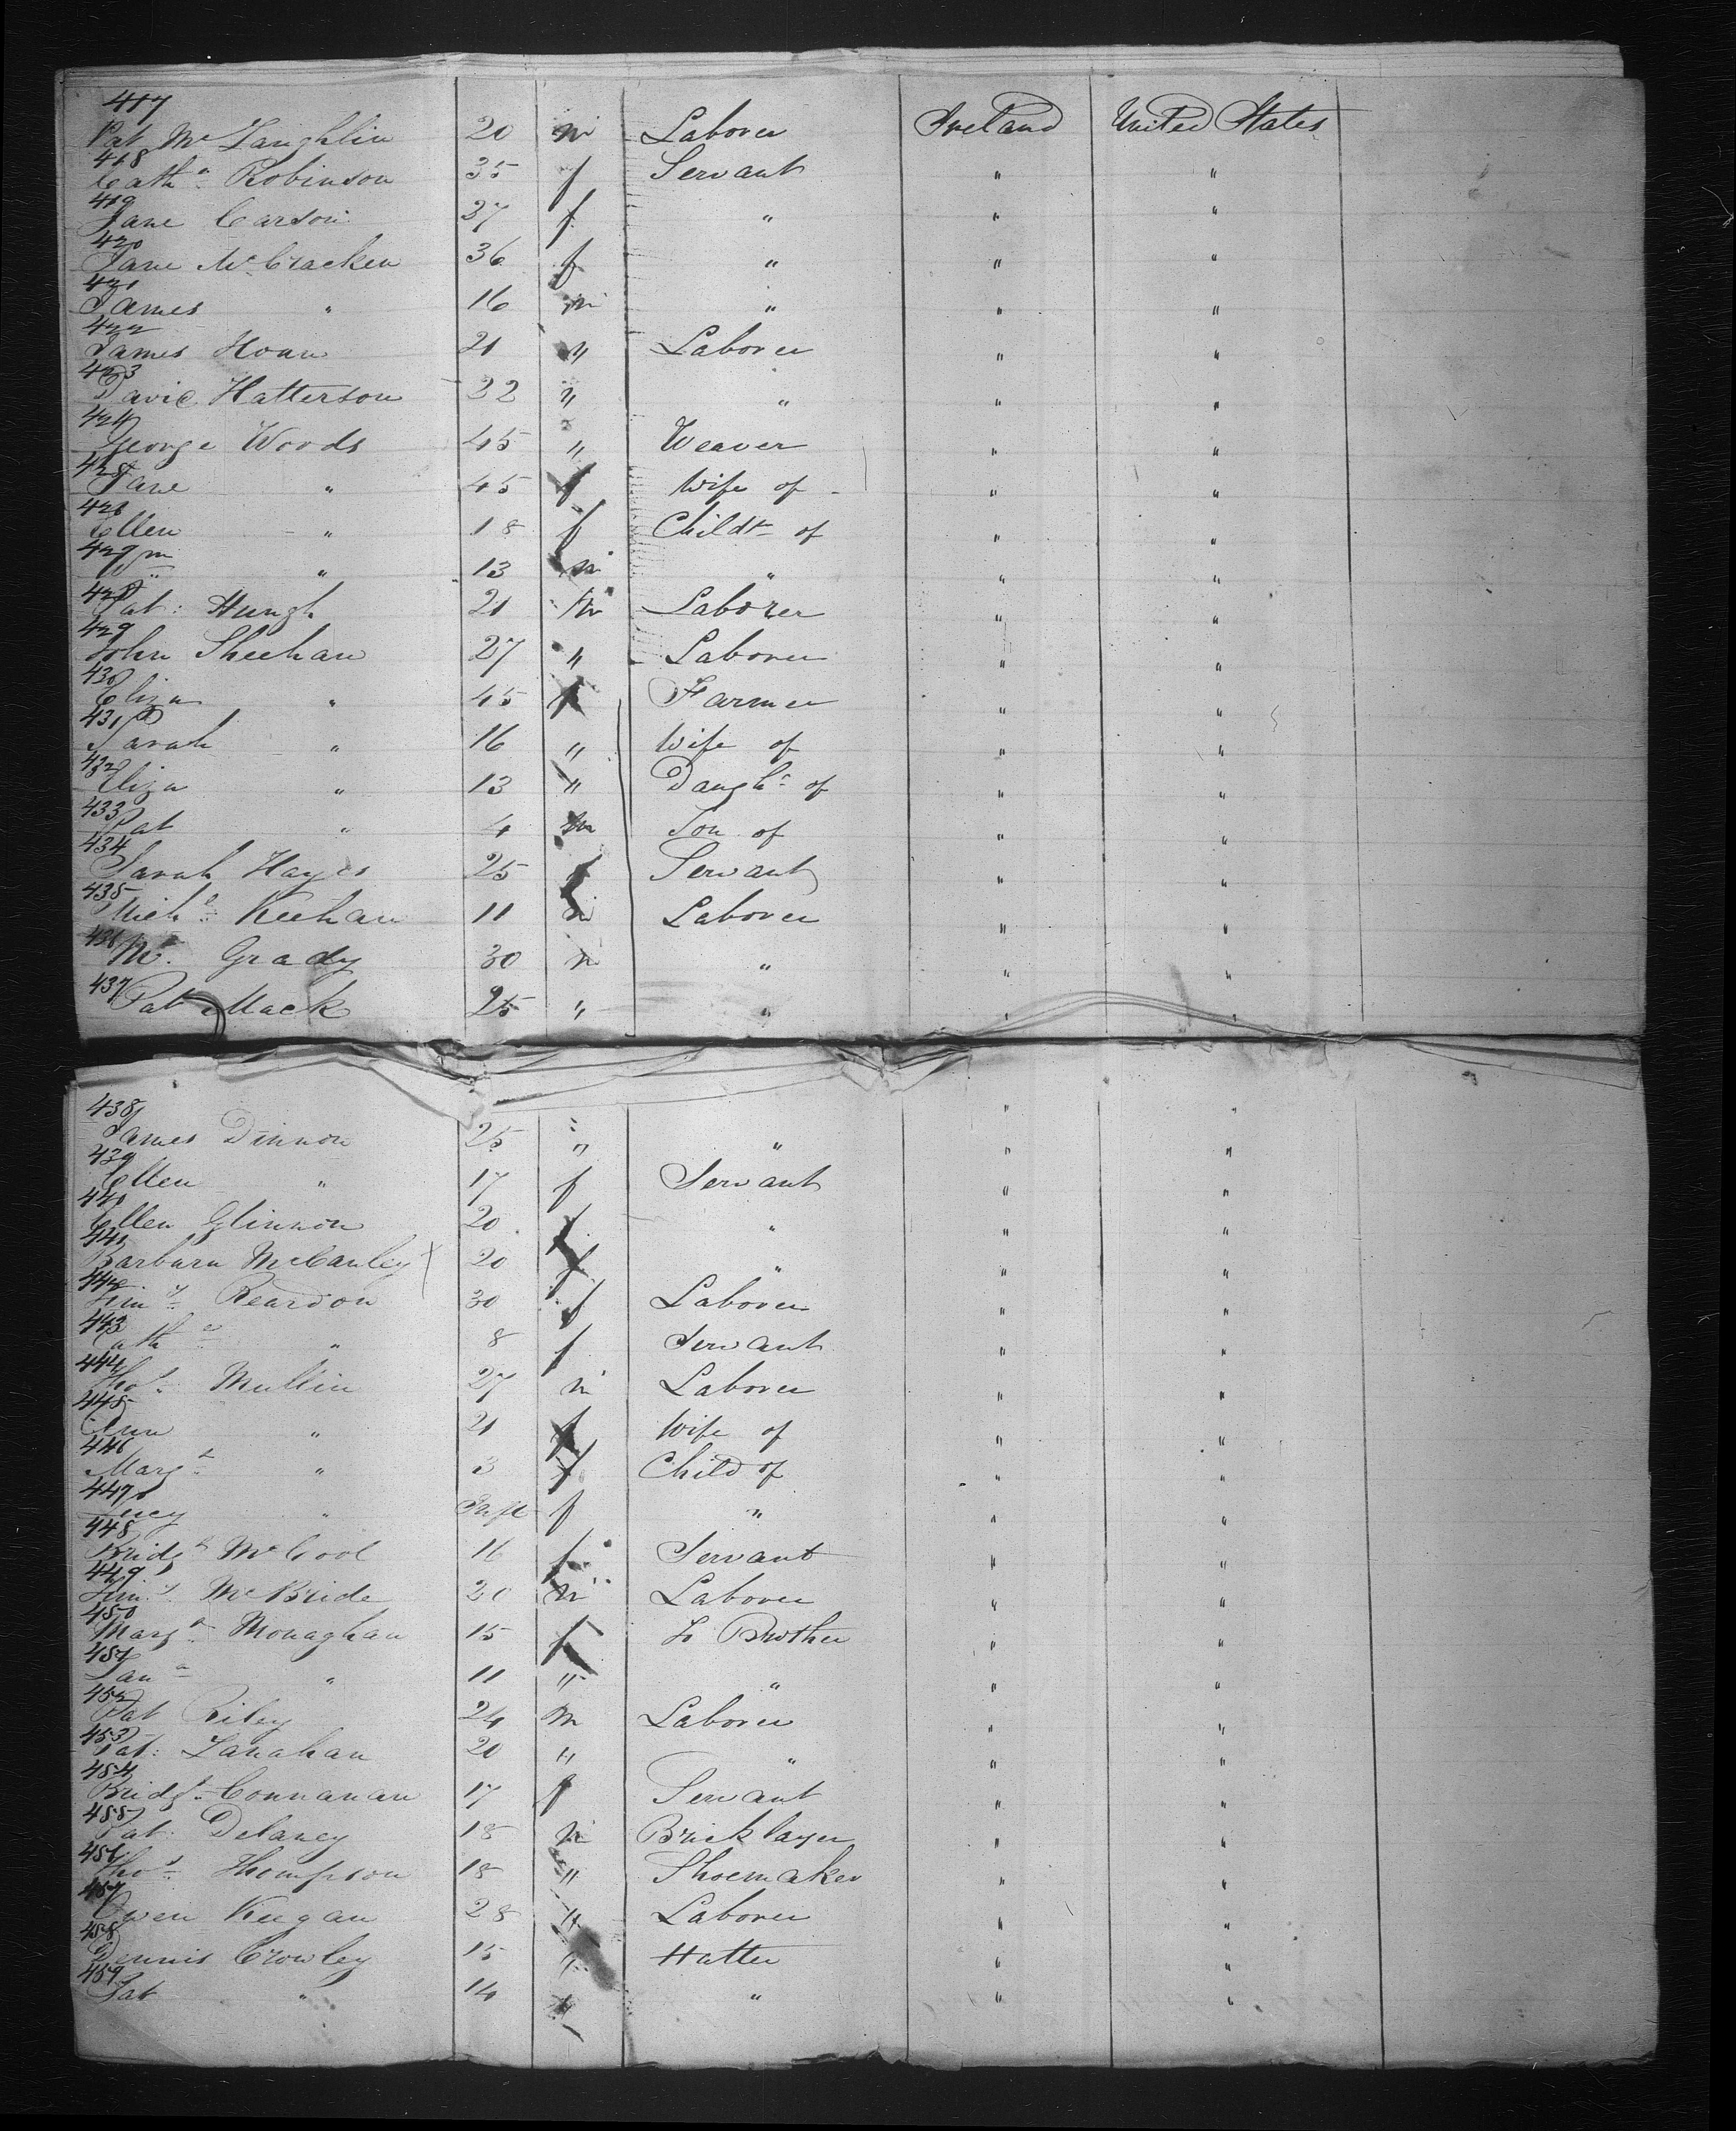 417
Pat McLaughlin 20 m Laborer Ireland United States
418
Cath.a Robinson 35 f Servant " "
419
Jane Carson 37 f " " "
420
Jane McCracken 36 f " " "
421
James " 16 m " " "
422
James Hoan 21 " Laborer " "
423
David Hatterson 22 " " " "
424
George Woods 45 " Weaver " "
425
Jane " 45 f Wife of " "
426
Ellen " 18 f Childn of " "
427
Wm " 13 m " " "
428
Pat: Hungh 21 m Laborer " "
429
John Sheehan 27 " Laborer " "
430
Eliza " 45 f Farmer " "
431
Sarah " 16 " Wife of " "
432
Eliza " 13 " Daughr of " "
433
Pat " 4 m Son of " "
434
Sarah Hayes 25 f Servant " "
435
Michl Keehan 11 m Laborer " "
436
Grady 30 m " " "
437
Pat Mack 25 " " " "
438
James Dinnon 25 " " " "
439
Ellen " 17 f Servant " "
440
Ellen Glinnon 20 f " " "
441
Barbara McCauley 20 f " " "
442
Timy Reardon 30 f Laborer " "
443
Cath " 8 f Servant " "
444
Thos Mullin 27 m Laborer " "
445
Ann " 21 f Wife of " "
446
Margt " 3 f Child of " "
447
Lucy " Inft f " " "
448
Bridgt McCool 16 f Servant " "
449
Timy McBride 20 m Laborer " "
450
Margt Monaghan 15 f To Brother " "
451
" 11 " " " "
452
Pat Riley 24 m Laborer " "
453
Pat: Lanahan 20 " " " "
454
Bridgt Connanan 17 f Servant " "
455
Pat Delaney 18 m Bricklayer " "
456
Thos Thompson 18 " Shoemaker " "
457
Owen Keegan 28 " Laborer " "
458
Dennis Crowley 15 " Hatter " "
459
Pat " 14 " " " "